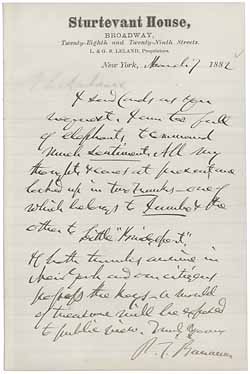 Sturtevant House,
BROADWAY,
Twenty-Eighth and Twenty-Ninth Streets.
L. & G. S. LELAND, Proprietors.
New York, March 7 1882
I send cards as you
request. I am too full
of elephants to command
much sentiment. All my
thoughts & cares at present are
locked up in two trunks—one of
which belongs to Jumbo & the
other to Little "Bridgeport."
If both trunks arrive in
New York and our citizens
possess the keys a world
of treasure will be exposed
to public view. Truly Yours
P. T. Barnum